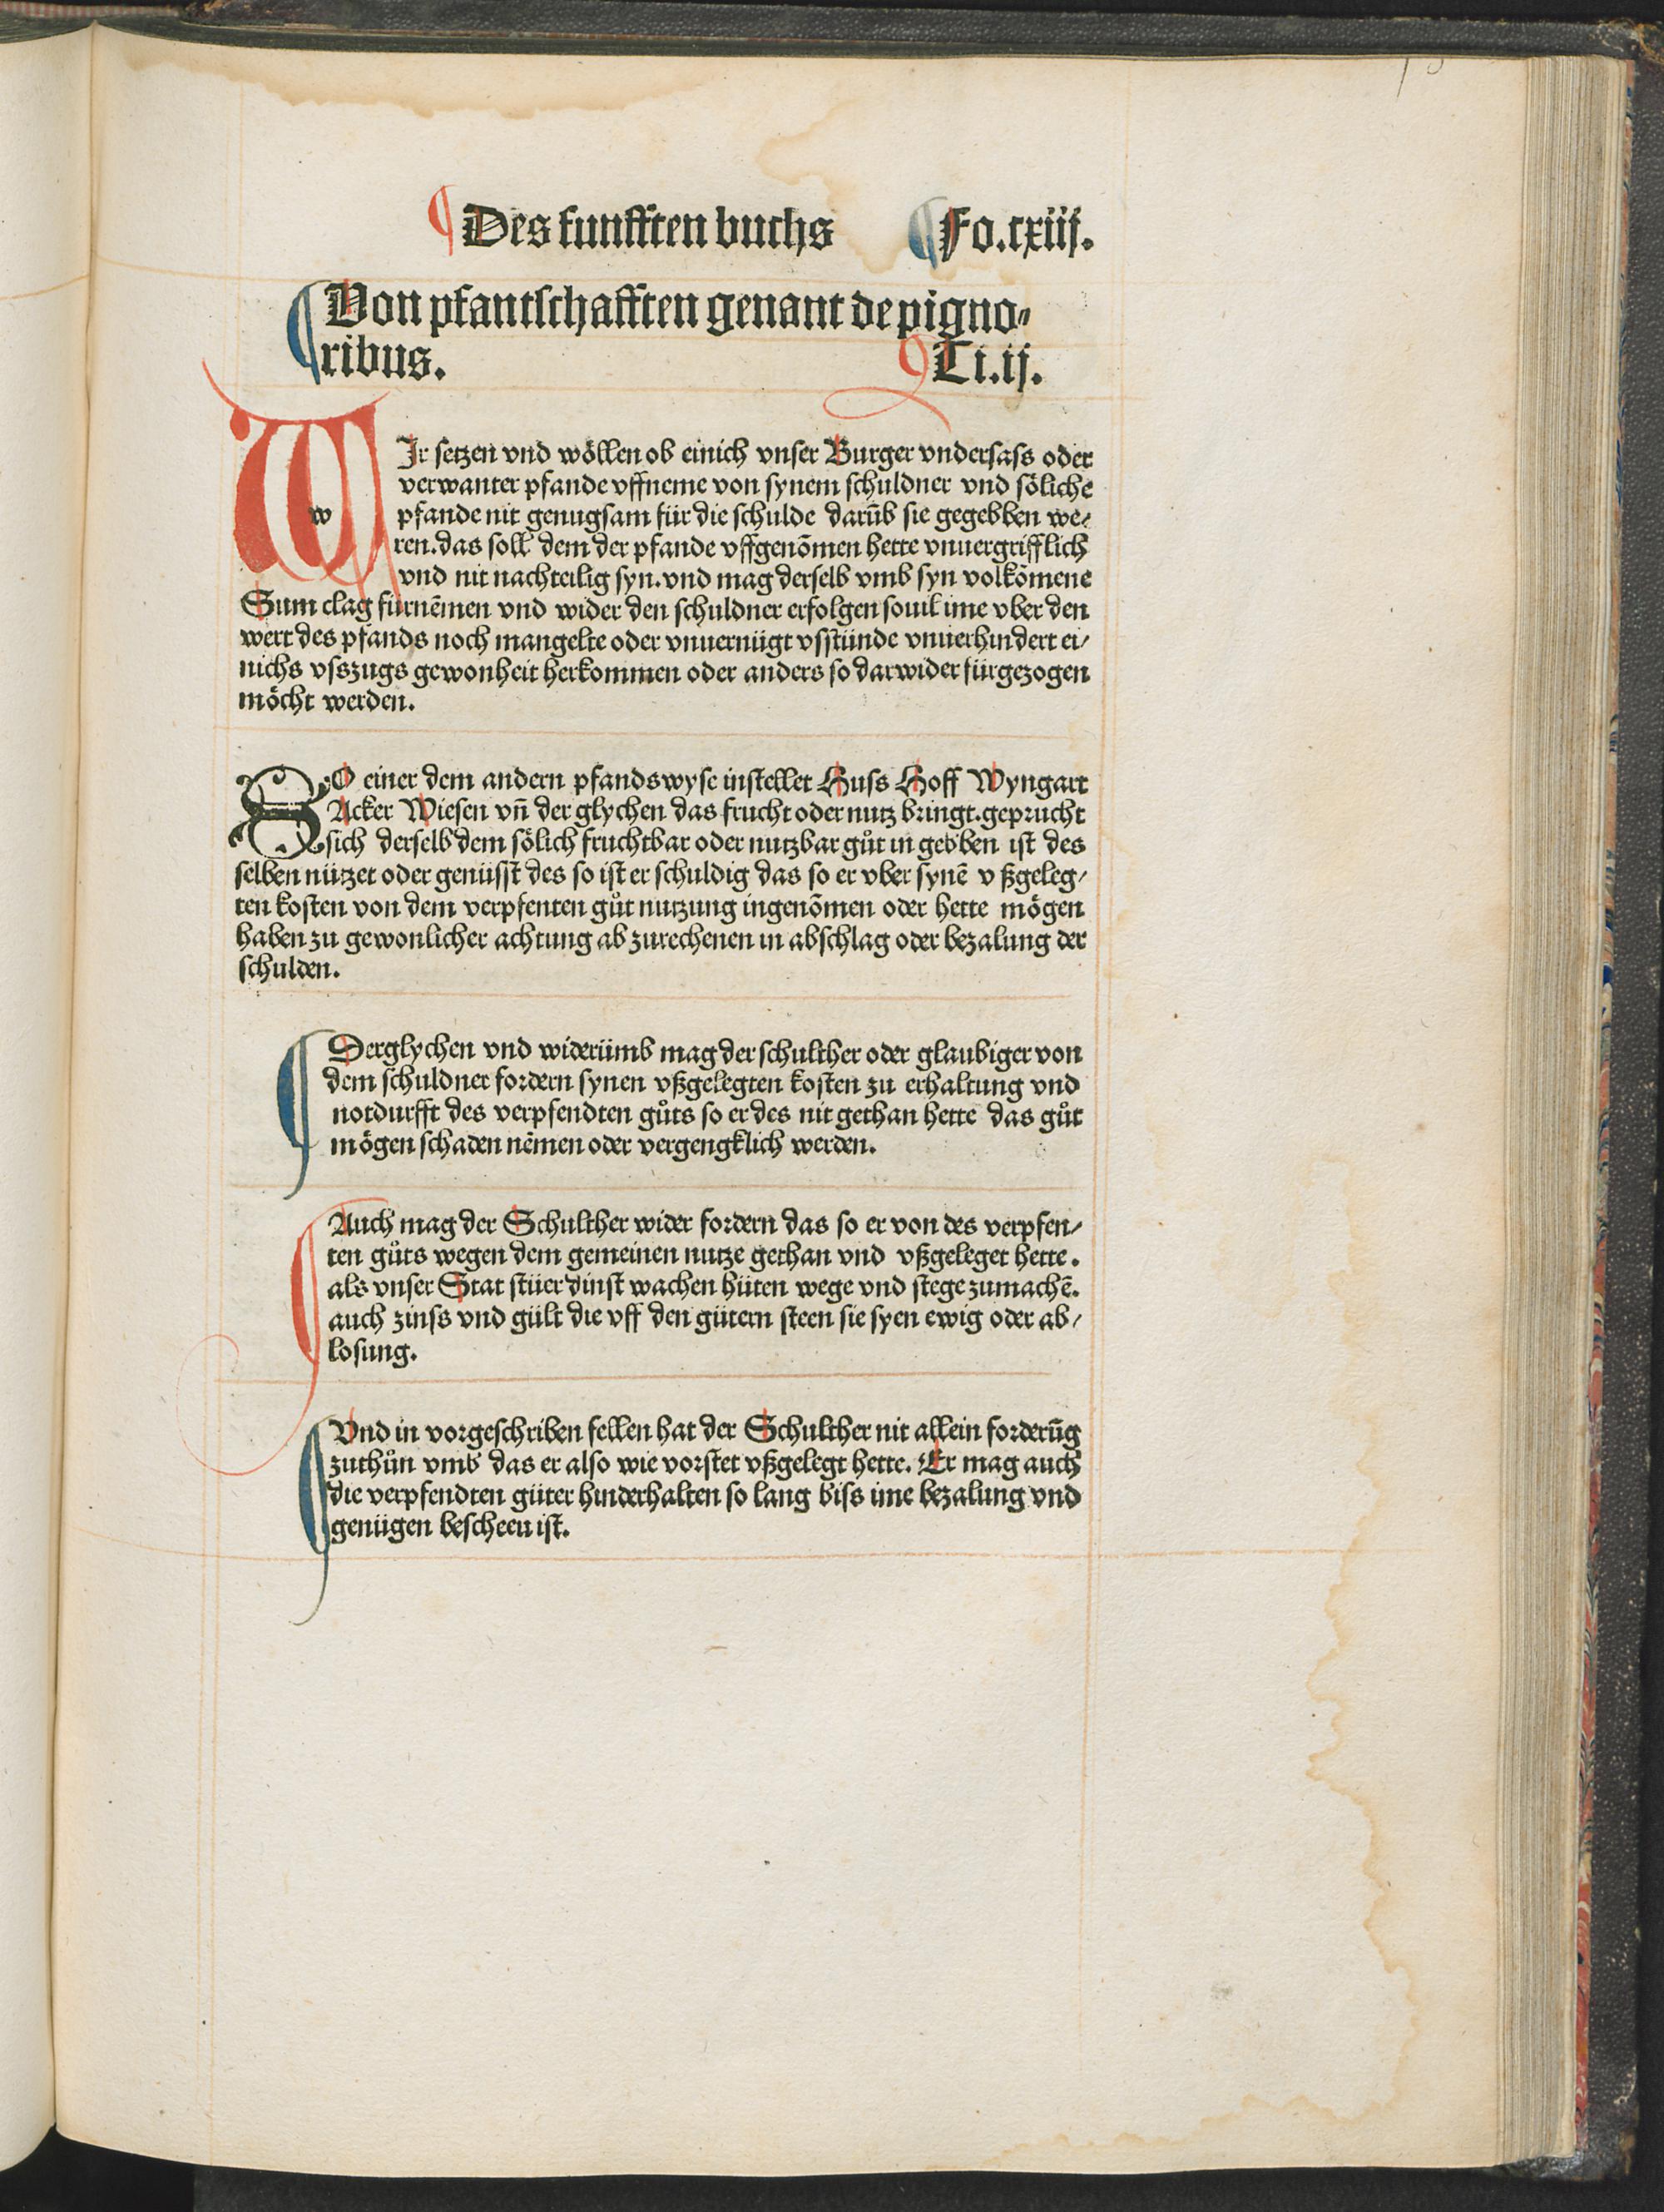 ¶ Des funfften buchs ¶ Fo.cxiij.
¶ Von pfantschafften genant de pigno⸗
ribus. ¶ Ti.ij.
WIr setzen vnd wöllen ob einich vnser Burger vndersass oder
verwanter pfande vffneme von synem schuldner vnd söliche
pfande nit genugsam für die schulde darūb sie gegebben we⸗
ren. das soll dem der pfande vffgenōmen hette vnuergrifflich
vnd nit nachteilig syn. vnd mag derselb vmb syn volkōmene
Sum clag fürnēmen vnd wider den schuldner erfolgen souil ime vber den
wert des pfands noch mangelte oder vnuernügt vsstünde vnuerhindert ei⸗
nichs vsszugs gewonheit herkommen oder anders so darwider fürgezogen
möcht werden.
SO einer dem andern pfandswyse instellet Huss Hoff Wyngart
Acker Wiesen vn̄ der glychen das frucht oder nutz bringt. geprucht
sich derselb dem sölich fruchtbar oder nutzbar gůt in gebben ist des
selben nützet oder genüsst des so ist er schuldig das so er vber synē vßgeleg⸗
ten kosten von dem verpfenten gůt nutzung ingenōmen oder hette mögen
haben zu gewonlicher achtung ab zurechenen in abschlag oder bezalung der
schulden.
¶ Derglychen vnd widerümb mag der schulther oder glaubiger von
dem schuldner fordern synen vßgelegten kosten zu erhaltung vnd
notdurfft des verpfendten gůts so er des nit gethan hette das gůt
mögen schaden nēmen oder vergengklich werden.
¶ Auch mag der Schulther wider fordern das so er von des verpfen⸗
ten gůts wegen dem gemeinen nutze gethan vnd vßgeleget hette.
als vnser Stat stüer dinst wachen hüten wege vnd stege zumachē.
auch zinss vnd gült die vff den gütern steen sie syen ewig oder ab⸗
losung.
¶ Vnd in vorgeschriben fellen hat der Schulther nit allein forderūg
zuthůn vmb das er also wie vorstet vßgelegt hette. Er mag auch
die verpfendten güter hinderhalten so lang biss ime bezalung vnd
genügen bescheen ist.